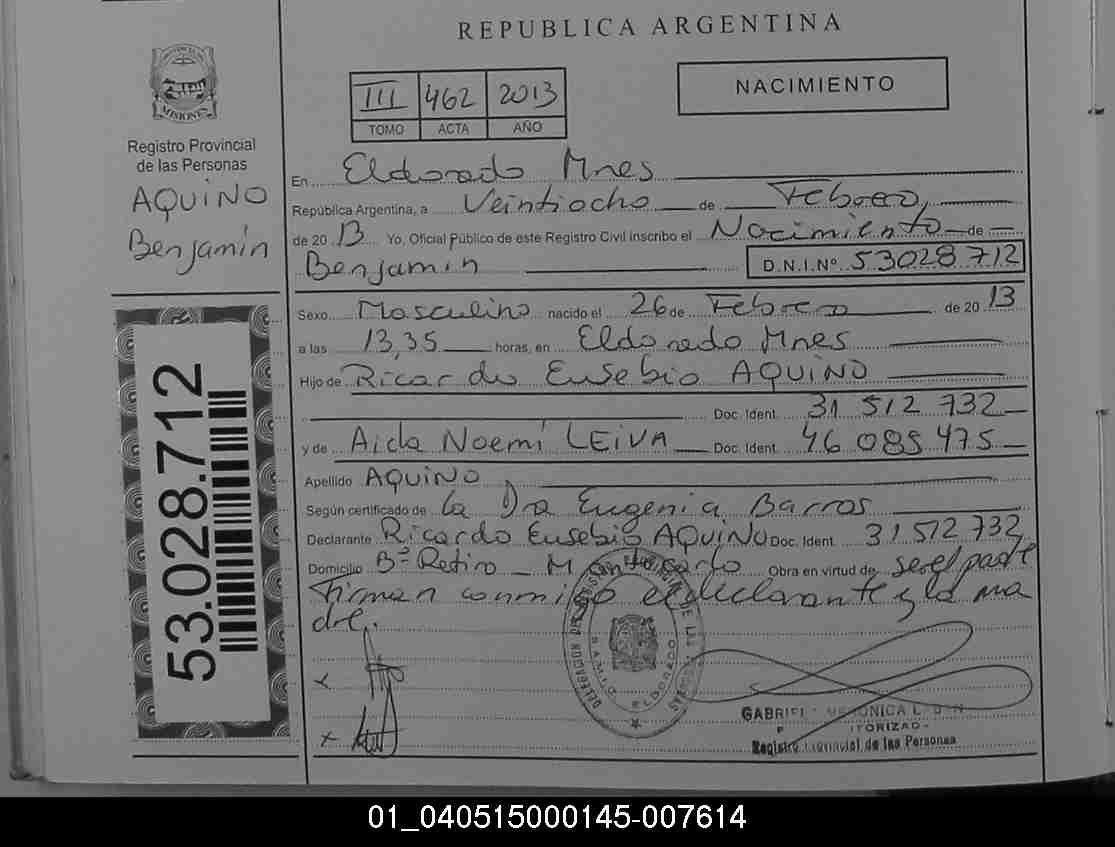 REPUBLICA ARGENTINA
III 462 2013
TOMO ACTA AÑO
NACIMIENTO
MISIONES
Registro Provincial
de las Personas
AQUINO
Benjamín
53.028.712
En Eldorado Mnes
República Argentina, a Veintiocho de Febrero,
de 20 13 Yo, Oficial Público de este Registro Civil inscribo el Nacimiento de
Benjamin D.N.I.Nº 53028712
Sexo Masculino nacido el 26 de Febrero de 20 13
a las 13,35 horas, en Eldorado Mnes
Hijo de Ricardo Eusebio AQUINO
Doc. Ident. 31 512 732
y de Aida Noemí LEIVA Doc. Ident. 46 085 475
Apellido AQUINO
Según certificado de la Dra Eugenia Barros
Declarante Ricardo Eusebio AQUINO Doc. Ident. 31 512 732
Domicilio Bº Retiro - Montecarlo Obra en virtud de ser el padre
Firman conmigo el declarante y la ma
dre.
x
x
ELDORADO
Registro Provincial de las Personas
01_040515000145-007614